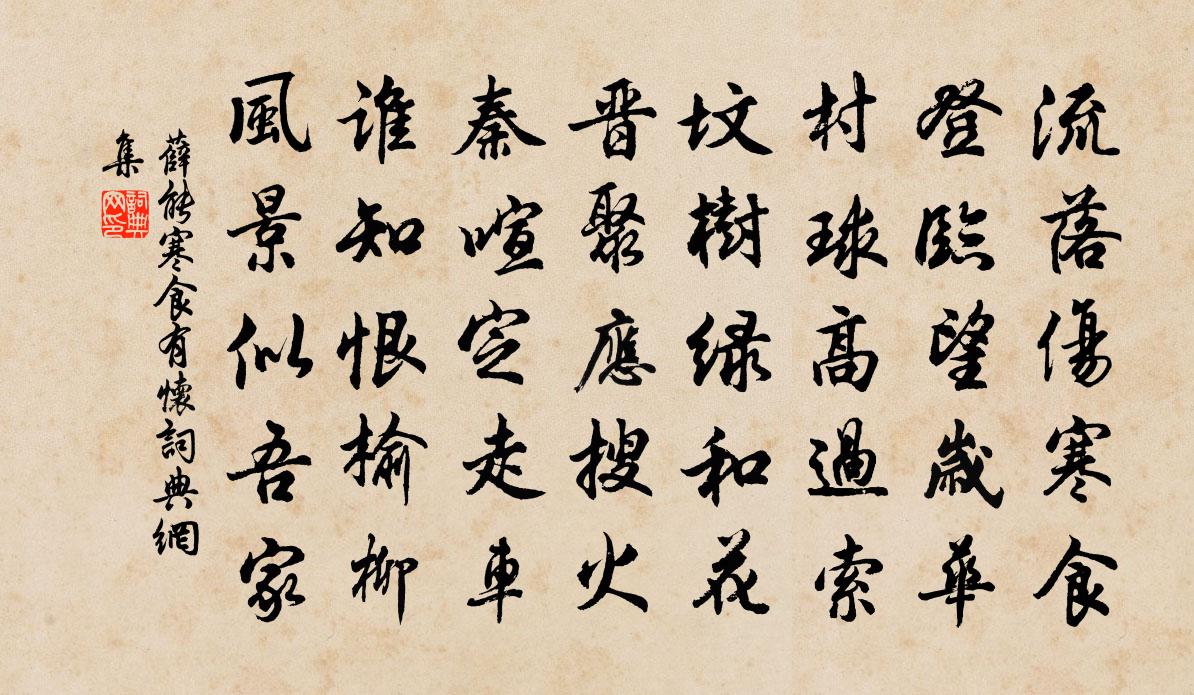 流落傷寒食
登臨望歲華
村球高過索
墳樹綠和花
晉聚應搜火
秦喧定走車
誰知恨榆柳
風景似吾家
薛能寒食有懷詞典網
集
詞典
网印